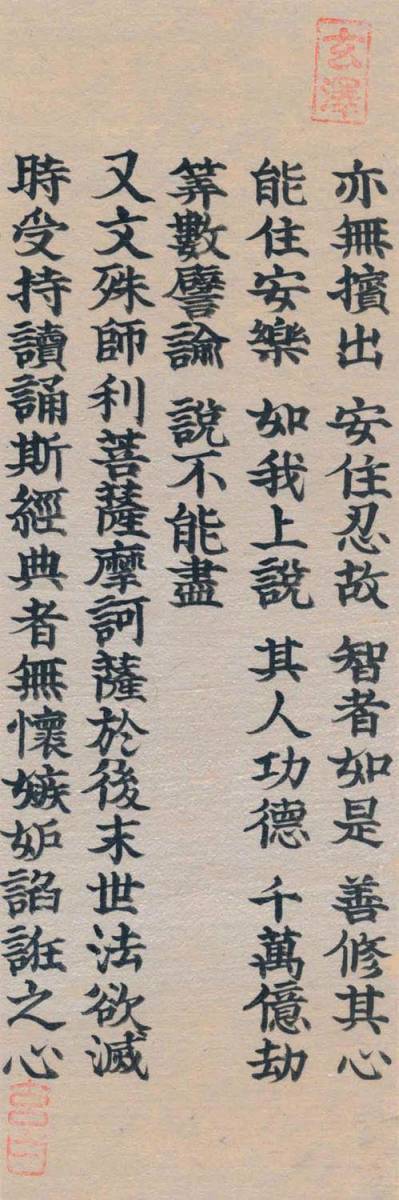 玄澤
亦無擯出 安住忍故 智者如是 善修其心
能住安樂 如我上說 其人功德 千萬億劫
筭數譬諭 說不能盡
又文殊師利菩薩摩訶薩於後末世法欲滅
時受持讀誦斯經典者無懷嫉妒諂誑之心